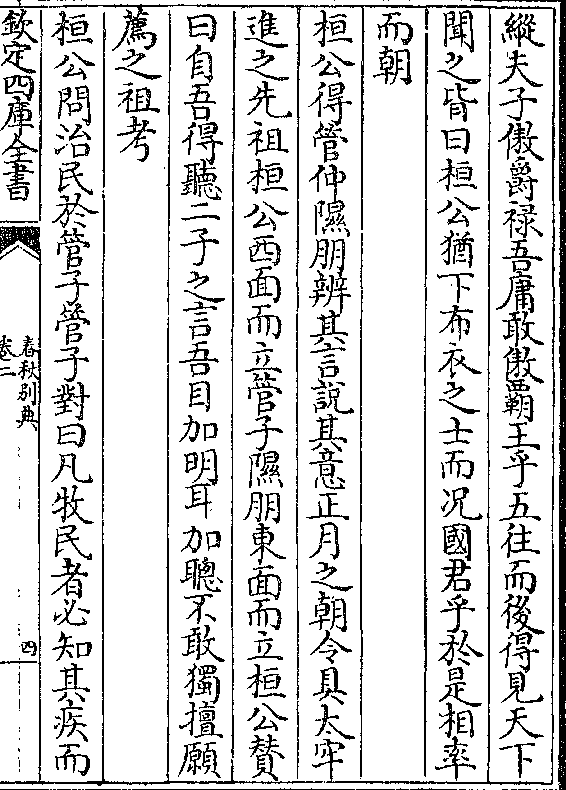 縱夫子傲爵祿吾庸敢傲覇王乎五往而後得見天下
聞之皆曰桓公猶下布衣之士而况國君乎於是相率
而朝
桓公得管仲隰朋辨其言說其意正月之朝令具太牢
進之先祖桓公西面而立管子隰朋東面而立桓公賛
曰自吾得聽二子之言吾目加明耳加聰不敢獨擅願
薦之祖考
桓公問治民於管子管子對曰凡牧民者必知其疾而
欽定四庫全書
春秋別典
卷二
四